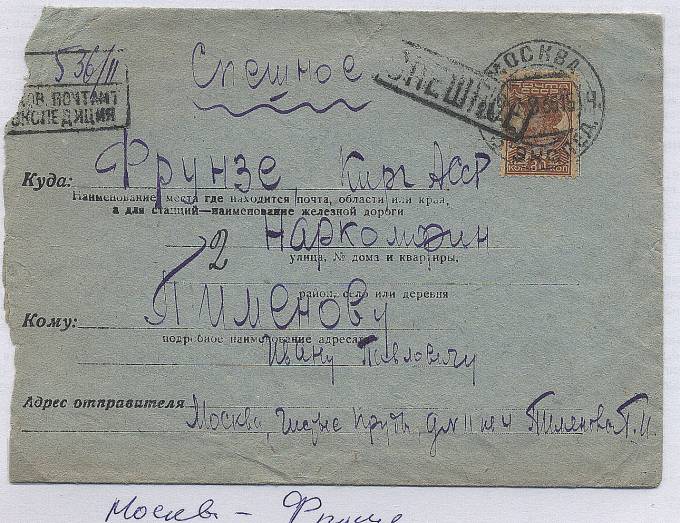 536/II
Спешное
ПОЧТАМТ
ЭКСПЕДИЦИЯ
СПЕШНОЕ
МОСКВА
ЭКСПЕД.
КОП. 80 КОП.
Куда: Фрунзе Кирг АССР
Наименование места где находится почта, области или края,
а для станций—наименование железной дороги
Наркомфин
улица, № дома и квартиры,
2
район, село или деревня
Кому: Пименову
подробное наименование адресата
Ивану Павловичу
Адрес отправителя Москва, Чистые Пруды, дом 11 кв 4 Пименова П. И.
Москва - Фрунзе